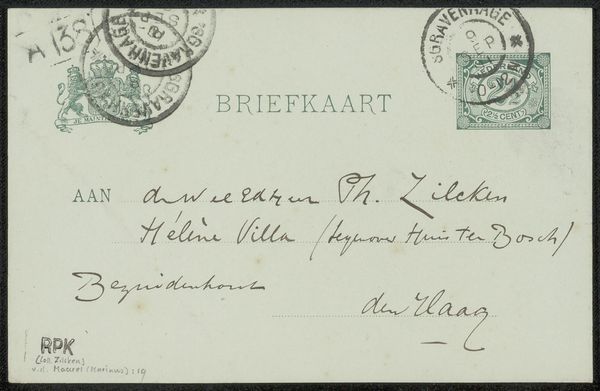 A 13
'SGRAVENHAGE
'SGRAVENHAGE
SGRAVENHAGE
SEP
JE MAINTIENDRAI
BRIEFKAART
NEDERLAND
2½ CENT
AAN den WelEdHeer Ph. Zilcken
Hélène Villa (tegenover Huis ten Bosch)
Bezuidenhout
den Haag
RPK
(coll. Zilcken)
v.d. Maarel (Marinus) : 19